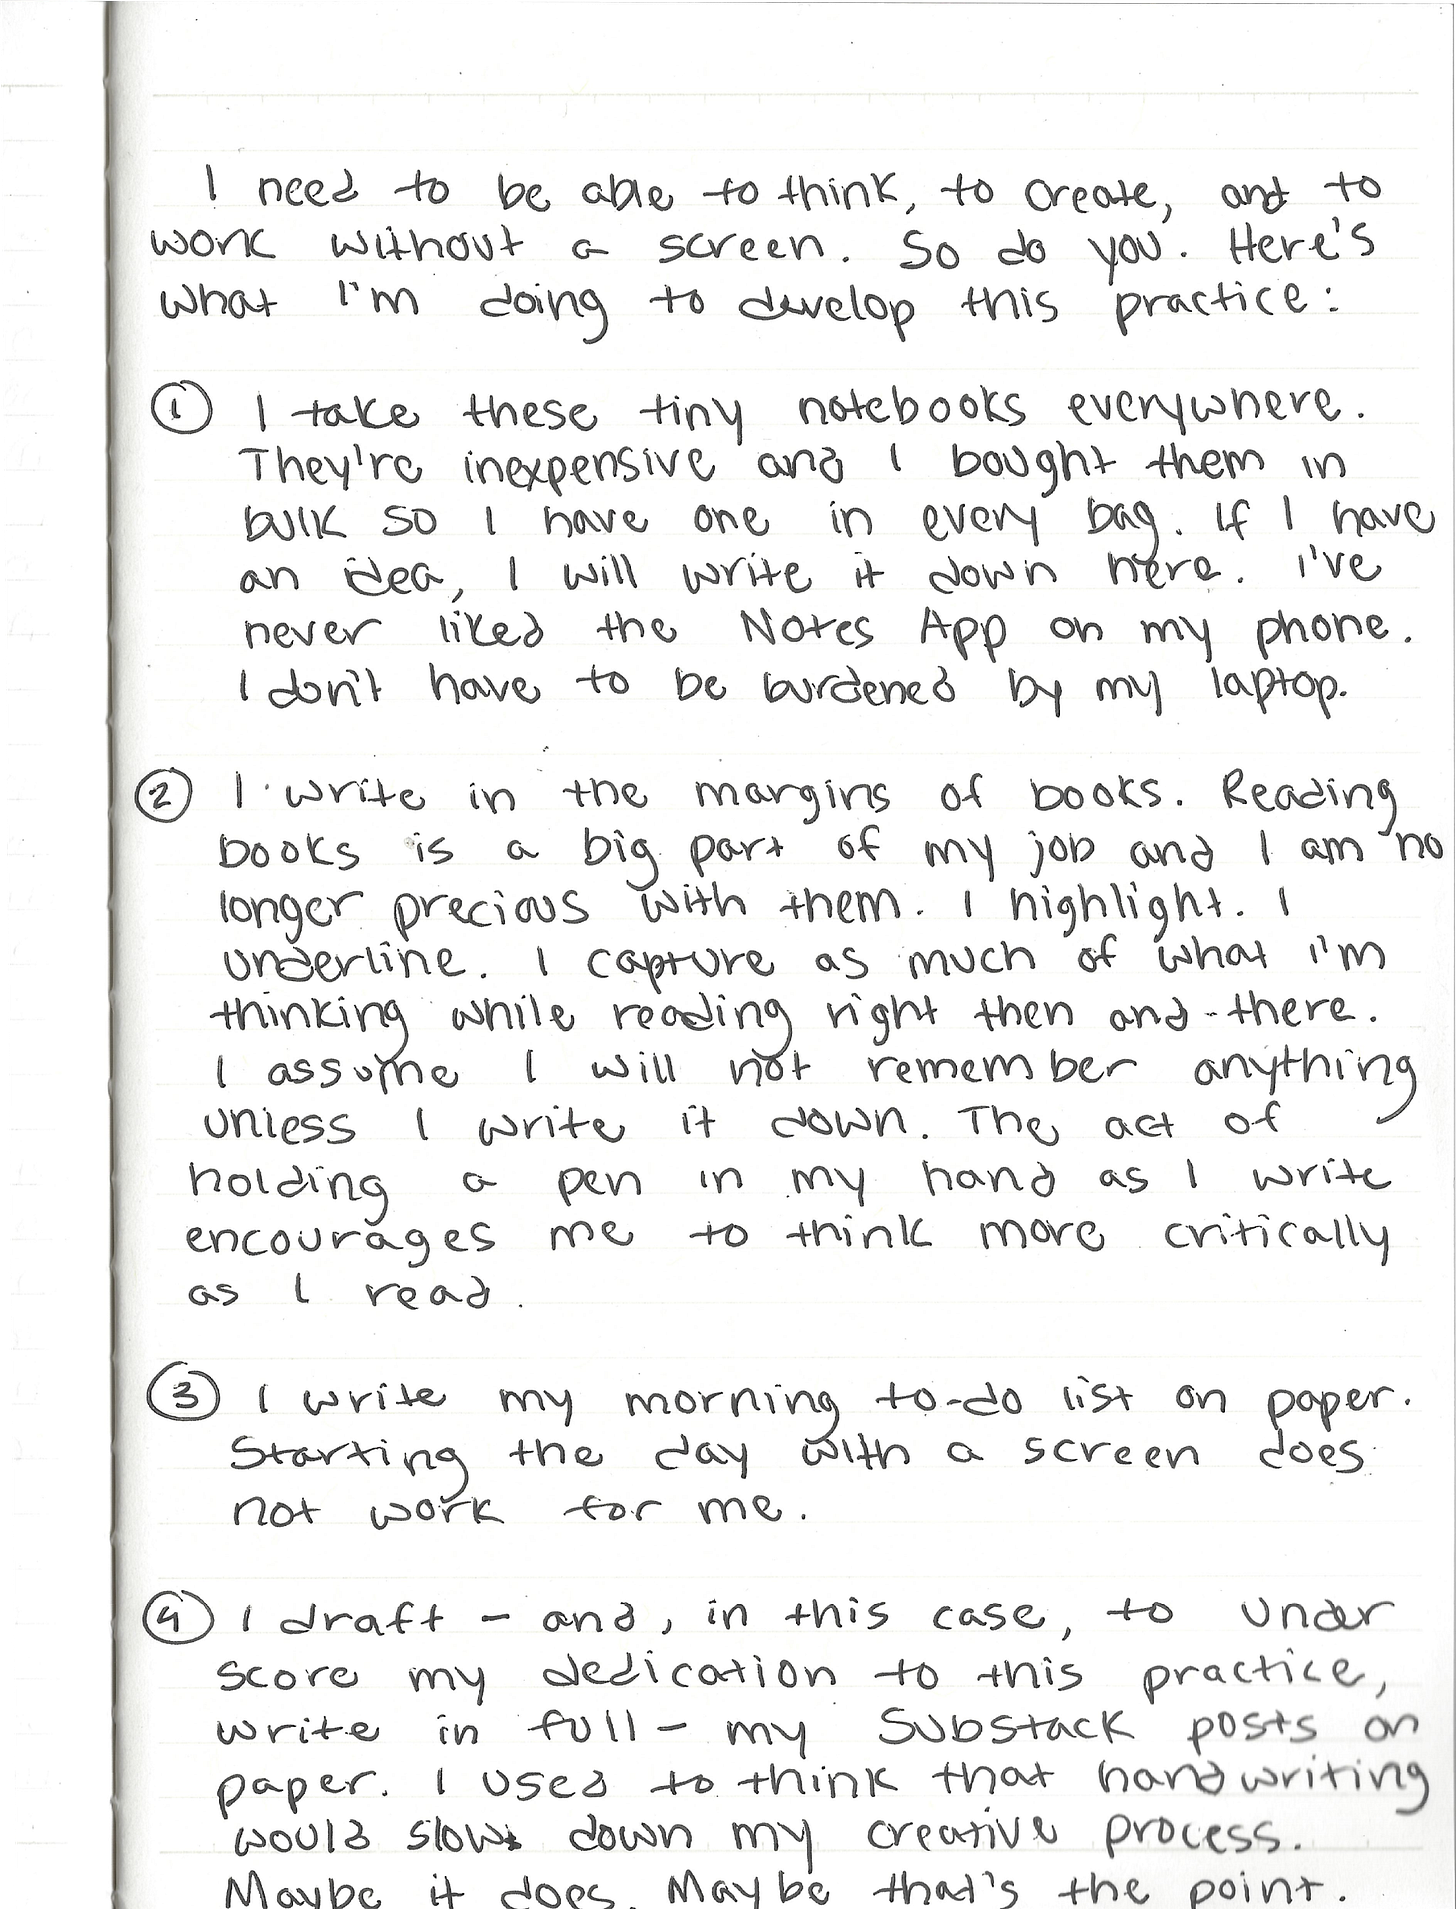 I need to be able to think, to create, and to
work without a screen. So do you. Here's
what I'm doing to develop this practice:
① I take these tiny notebooks everywhere.
They're inexpensive and I bought them in
bulk so I have one in every bag. If I have
an idea, I will write it down here. I've
never liked the Notes App on my phone.
I don't have to be burdened by my laptop.
② I write in the margins of books. Reading
books is a big part of my job and I am no
longer precious with them. I highlight. I
underline. I capture as much of what I'm
thinking while reading right then and there.
I assume I will not remember anything
unless I write it down. The act of
holding a pen in my hand as I write
encourages me to think more critically
as I read.
③ I write my morning to-do list on paper.
Starting the day with a screen does
not work for me.
④ I draft - and, in this case, to under
score my dedication to this practice,
write in full - my Substack posts on
paper. I used to think that handwriting
would slow down my creative process.
Maybe it does. Maybe that's the point.